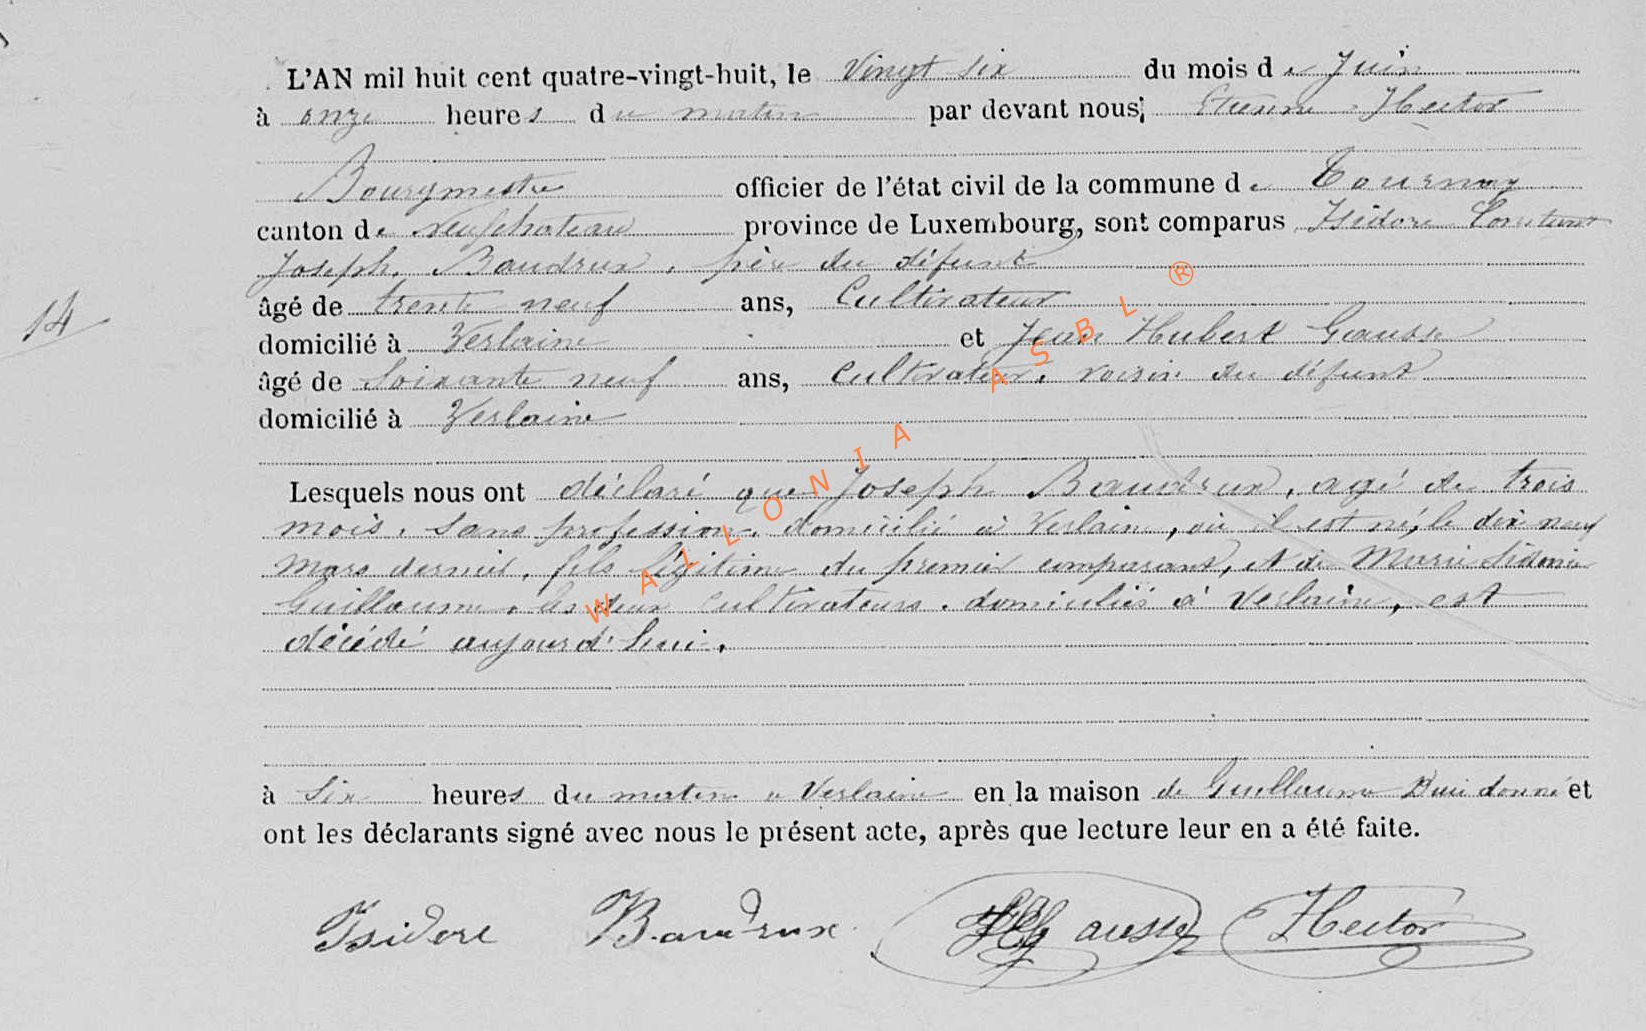 L'AN mil huit cent quatre-vingt-huit, le Vingt six du mois de Juin
à onze heures du matin par devant nous; Etienne Hector
Bourgmestre officier de l'état civil de la commune de Tournay
canton de Neufchateau province de Luxembourg, sont comparus Isidore Constant
Joseph Baudrux, père du défunt
âgé de trente neuf ans, Cultivateur
14
domicilié à Verlaine et Jean Hubert Gausse
âgé de soixante neuf ans, Cultivateur, voisin du défunt
domicilié à Verlaine
Lesquels nous ont déclaré que Joseph Baudrux, agé de trois
mois, sans profession, domicilié à Verlaine, où il est né, le dix neuf
Mars dernier, fils légitime du premier comparant, et de Marie Sidonie
Guillaume, les deux cultivateurs, domiciliés à Verlaine, est
décédé aujourd'hui,
à six heures du matin a Verlaine en la maison de Guillaume Dieudonné et
ont les déclarants signé avec nous le présent acte, après que lecture leur en a été faite.
Isidore Baudrux JHGausse Hector
WALLONIA ASBL ®